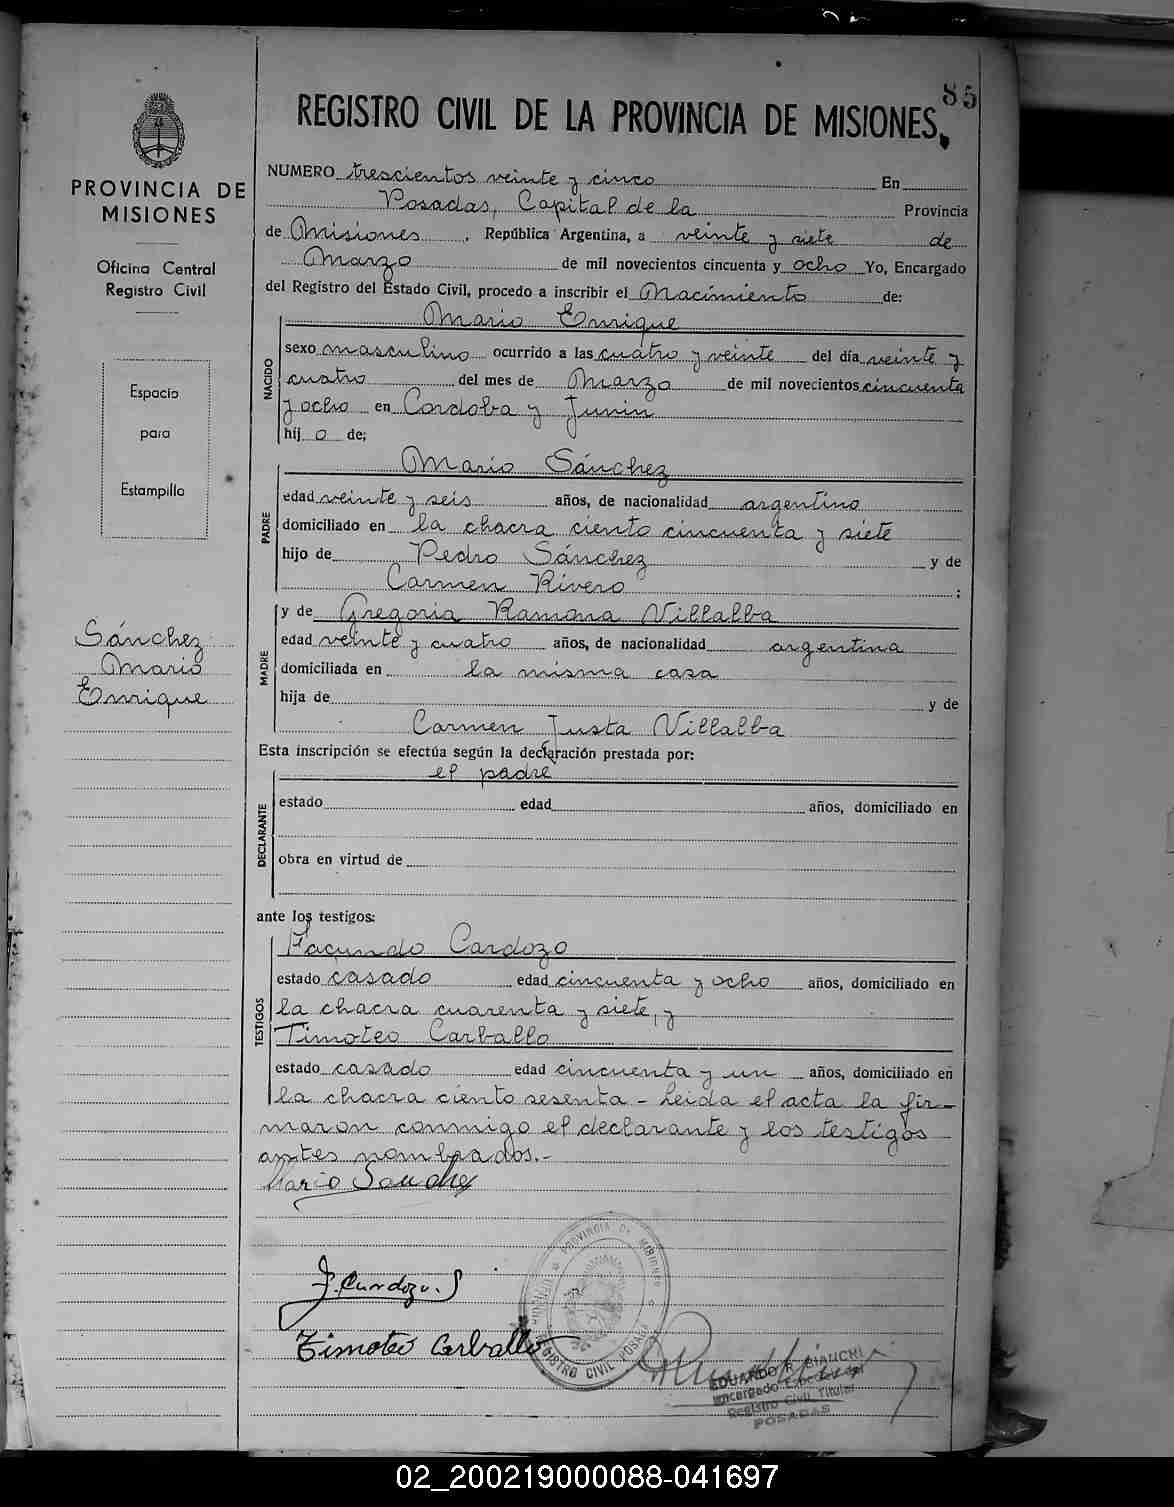 85
REGISTRO CIVIL DE LA PROVINCIA DE MISIONES
PROVINCIA DE
MISIONES
Oficina Central
Registro Civil
Espacio
para
Estampilla
Sánchez
Mario
Enrique
NUMERO trescientos veinte y cinco En
Posadas, Capital de la Provincia
de Misiones, República Argentina, a veinte y siete de
Marzo de mil novecientos cincuenta y ocho Yo, Encargado
del Registro del Estado Civil, procedo a inscribir el Nacimiento de:
NACIDO
Mario Enrique
sexo masculino ocurrido a las cuatro y veinte del día veinte y
cuatro del mes de Marzo de mil novecientos cincuenta
y ocho en Cordoba y Junin
hij o de;
PADRE
Mario Sánchez
edad veinte y seis años, de nacionalidad argentino
domiciliado en la chacra ciento cincuenta y siete
hijo de Pedro Sánchez y de
Carmen Rivero ;
MADRE
y de Gregoria Ramona Villalba
edad veinte y cuatro años, de nacionalidad argentina
domiciliada en la misma casa
hija de y de
Carmen Justa Villalba
Esta inscripción se efectúa según la declaración prestada por:
DECLARANTE
el padre
estado edad años, domiciliado en
obra en virtud de
ante los testigos:
TESTIGOS
Facundo Cardozo
estado casado edad cincuenta y ocho años, domiciliado en
la chacra cuarenta y siete, y
Timoteo Carballo
estado casado edad cincuenta y un años, domiciliado en
la chacra ciento sesenta - Leida el acta la fir-
maron conmigo el declarante y los testigos
antes nombrados.-
Mario Sanchez
F. Cardozo. S
Timoteo Carballo
PROVINCIA DE MISIONES
REGISTRO CIVIL POSADAS
EDUARDO R. BIANCHI
Encargado
Registro Civil Titular
POSADAS
02_200219000088-041697